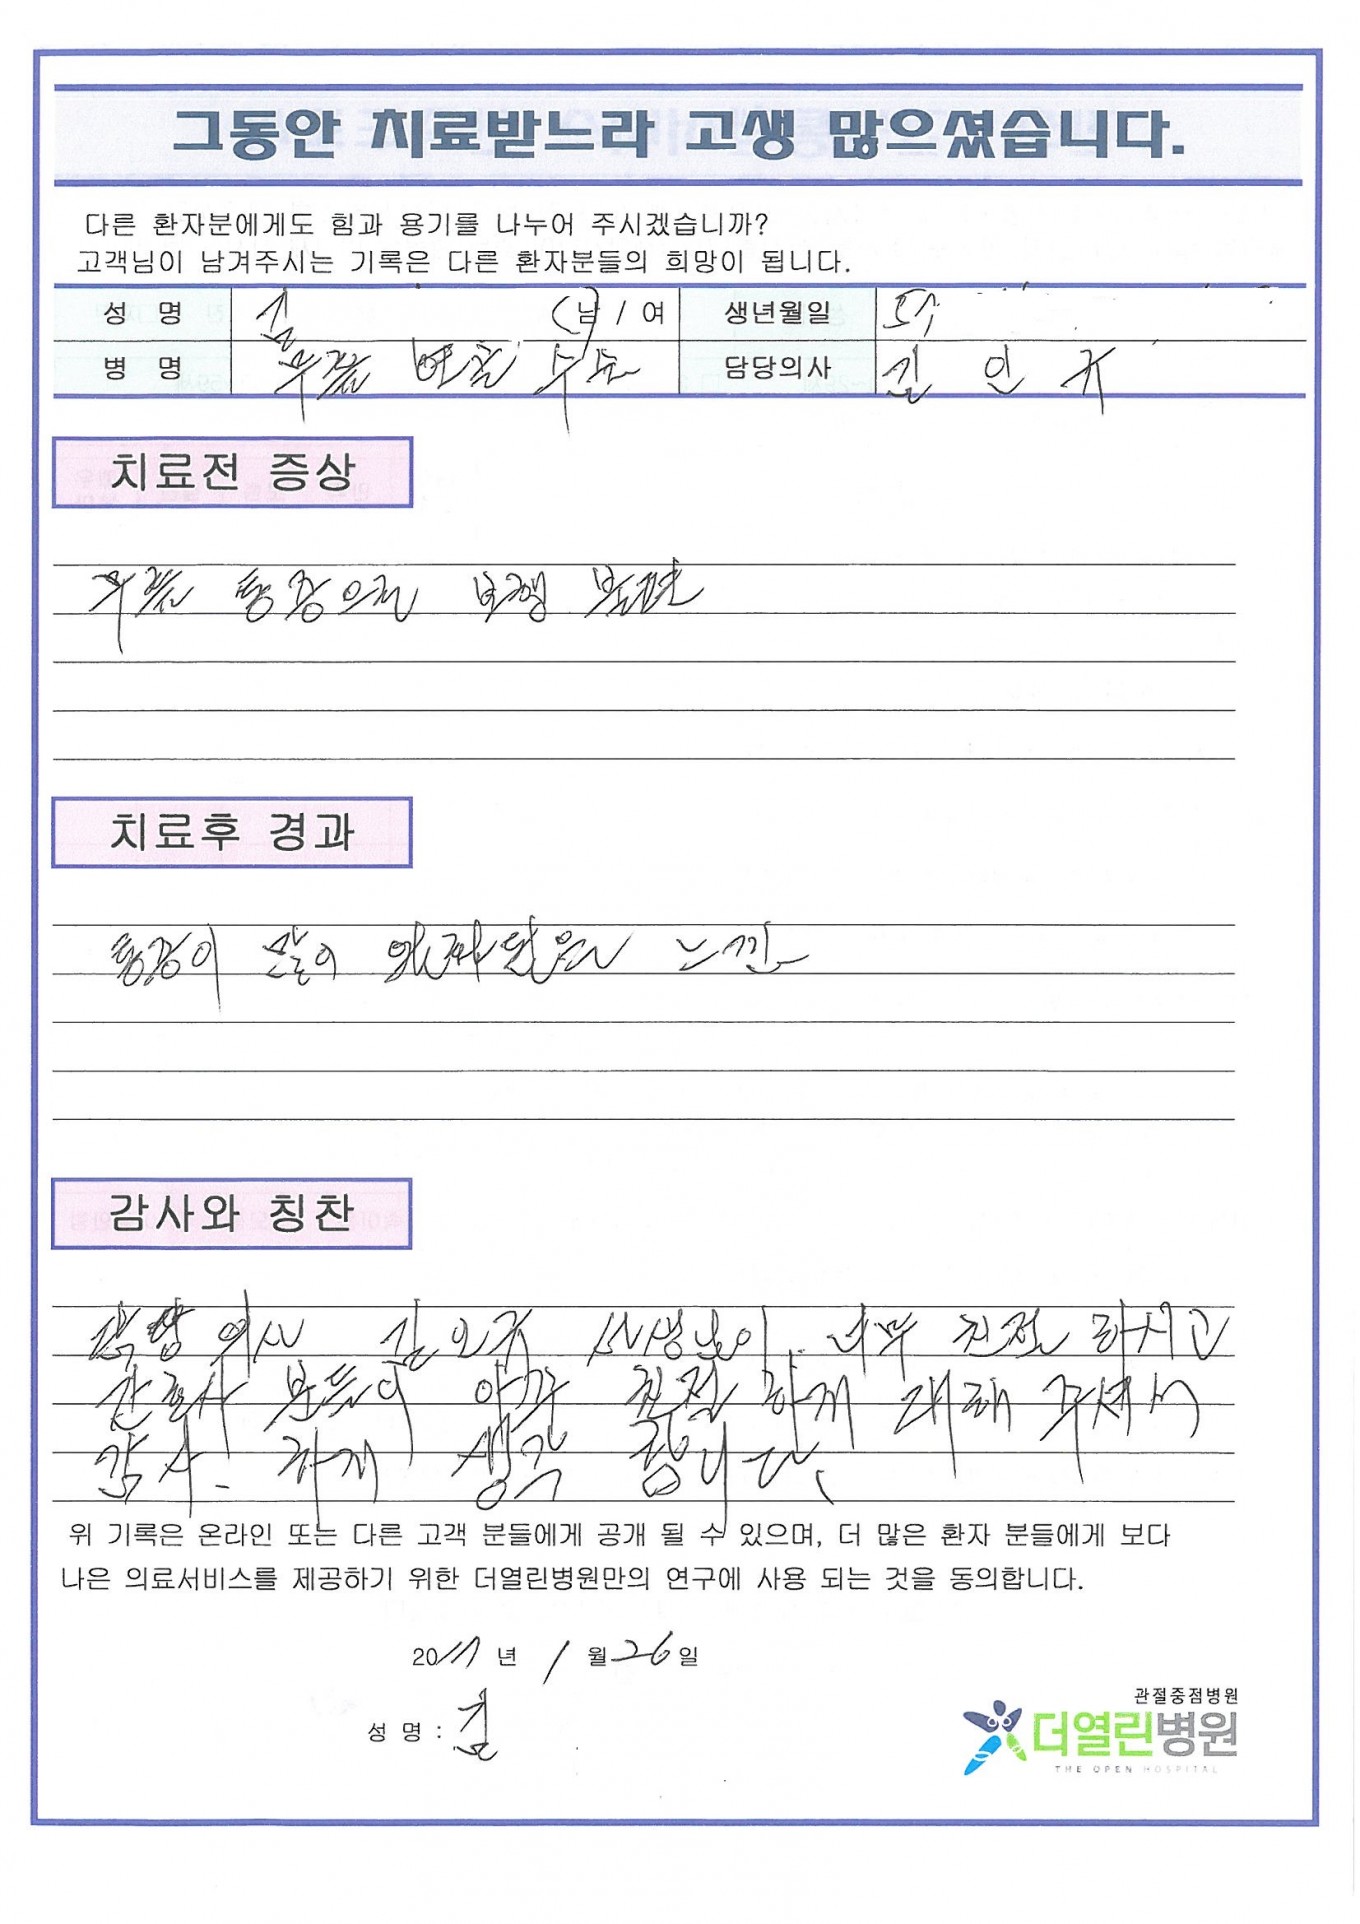 그동안 치료받느라 고생 많으셨습니다.
다른 환자분에게도 힘과 용기를 나누어 주시겠습니까?
고객님이 남겨주시는 기록은 다른 환자분들의 희망이 됩니다.
성 명 김 남 / 여 생년월일
병 명 무릎 연골 수술 담당의사 김 인 규
치료전 증상
무릎 통증으로 보행 불편
치료후 경과
통증이 많이 완화 된 느낌
감사와 칭찬
의사 김인규 선생님이 너무 친절 하시고
간호사 분들이 아주 친절 하게 대해 주셔서
감사 하게 생각 합니다.
위 기록은 온라인 또는 다른 고객 분들에게 공개 될 수 있으며, 더 많은 환자 분들에게 보다
나은 의료서비스를 제공하기 위한 더열린병원만의 연구에 사용 되는 것을 동의합니다.
2017 년 1 월 26 일
성 명 : 김
관절중점병원
더열린병원
THE OPEN HOSPITAL